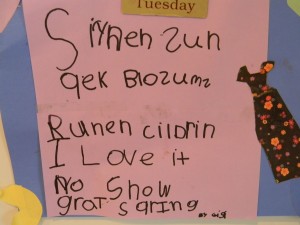 Tuesday
Sihhen zun
qek Blozumz
Runen cilorin
I Love it
No Show
grat s qring